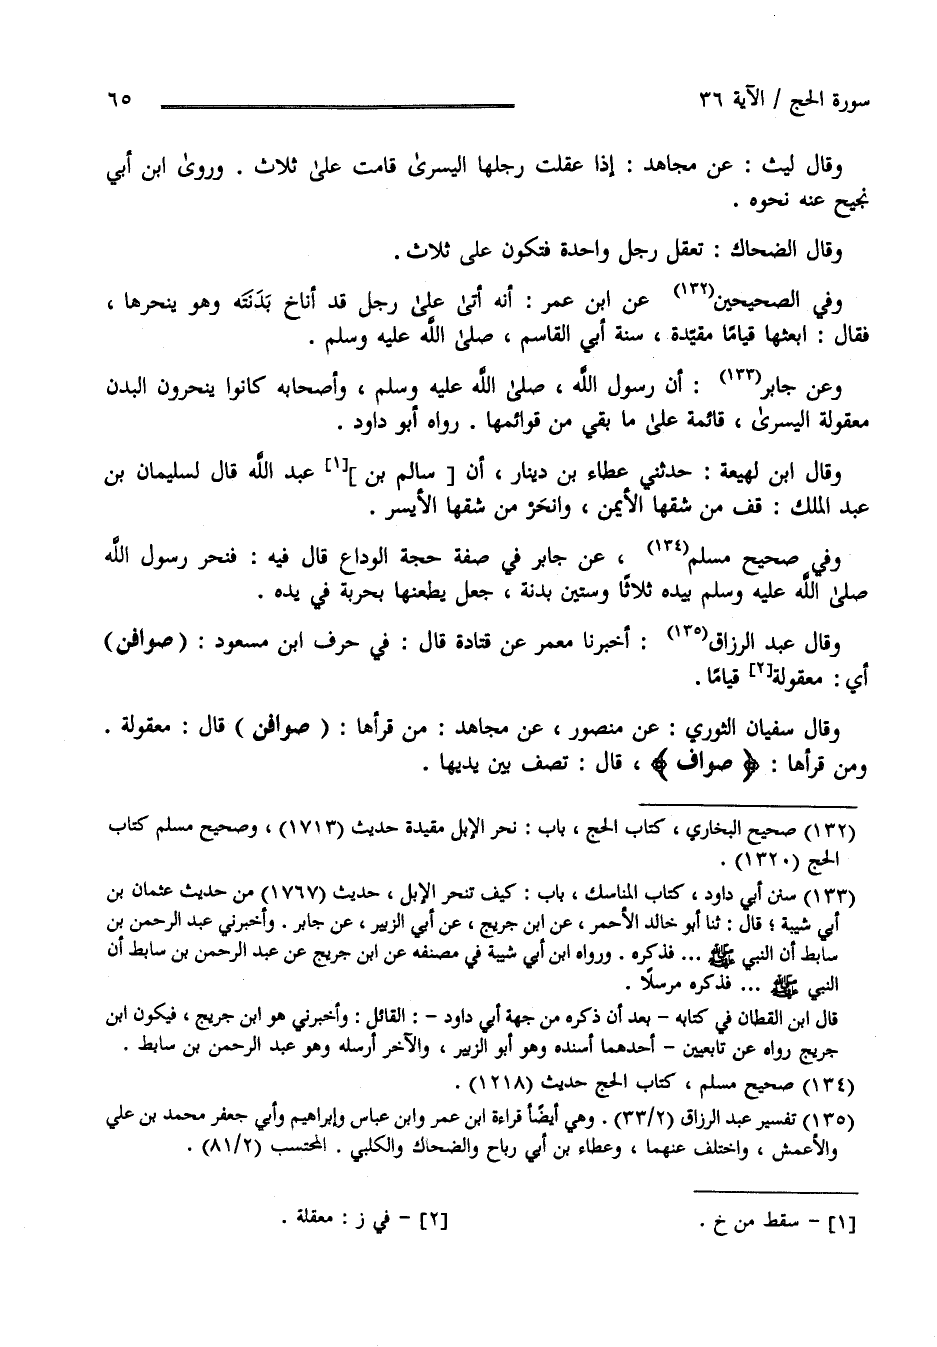 سورة الحج / الآية ٣٦ ٦٥
وقال ليث : عن مجاهد : إذا عقلت رجلها اليسرىٰ قامت علىٰ ثلاث . وروىٰ ابن أبي
نجيح عنه نحوه .
وقال الضحاك : تعقل رجل واحدة فتكون على ثلاث .
وفي الصحيحين(١٣٢) عن ابن عمر : أنه أتىٰ علىٰ رجل قد أناخ بَدَنَتَه وهو ينحرها ،
فقال : ابعثها قيامًا مقيّدة ، سنة أبي القاسم ، صلىٰ اللَّه عليه وسلم .
وعن جابر(١٣٣) : أن رسول اللَّه ، صلىٰ اللَّه عليه وسلم ، وأصحابه كانوا ينحرون البدن
معقولة اليسرىٰ ، قائمة علىٰ ما بقي من قوائمها . رواه أبو داود .
وقال ابن لهيعة : حدثني عطاء بن دينار ، أن [ سالم بن ][١] عبد اللَّه قال لسليمان بن
عبد الملك : قف من شقها الأيمن ، وانحَرْ من شقها الأيسر .
وفي صحيح مسلم(١٣٤) ، عن جابر في صفة حجة الوداع قال فيه : فنحر رسول اللَّه
صلىٰ اللَّه عليه وسلم بيده ثلاثًا وستين بدنة ، جعل يطعنها بحربة في يده .
وقال عبد الرزاق(١٣٥) : أخبرنا معمر عن قتادة قال : في حرف ابن مسعود : (صوافن)
أي : معقولة[٢] قيامًا .
وقال سفيان الثوري : عن منصور ، عن مجاهد : من قرأها : ( صوافن ) قال : معقولة .
ومن قرأها : ﴿ صواف ﴾ ، قال : تصف بين يديها .
(١٣٢) صحيح البخاري ، كتاب الحج ، باب : نحر الإبل مقيدة حديث (١٧١٣) ، وصحيح مسلم كتاب
الحج (١٣٢٠) .
(١٣٣) سنن أبي داود ، كتاب المناسك ، باب : كيف تنحر الإبل ، حديث (١٧٦٧) من حديث عثمان بن
أبي شيبة ؛ قال : ثنا أبو خالد الأحمر ، عن ابن جريج ، عن أبي الزبير ، عن جابر . وأخبرني عبد الرحمن بن
سابط أن النبي ﷺ ... فذكره . ورواه ابن أبي شيبة في مصنفه عن ابن جريج عن عبد الرحمن بن سابط أن
النبي ﷺ ... فذكره مرسلًا .
قال ابن القطان في كتابه – بعد أن ذكره من جهة أبي داود – : القائل : وأخبرني هو ابن جريج ، فيكون ابن
جريج رواه عن تابعيين – أحدهما أسنده وهو أبو الزبير ، والآخر أرسله وهو عبد الرحمن بن سابط .
(١٣٤) صحيح مسلم ، كتاب الحج حديث (١٢١٨) .
(١٣٥) تفسير عبد الرزاق (٣٣/٢) . وهي أيضًا قراءة ابن عمر وابن عباس وإبراهيم وأبي جعفر محمد بن علي
والأعمش ، واختلف عنهما ، وعطاء بن أبي رباح والضحاك والكلبي . المحتسب (٨١/٢) .
[١] – سقط من خ . [٢] – في ز : معقلة .